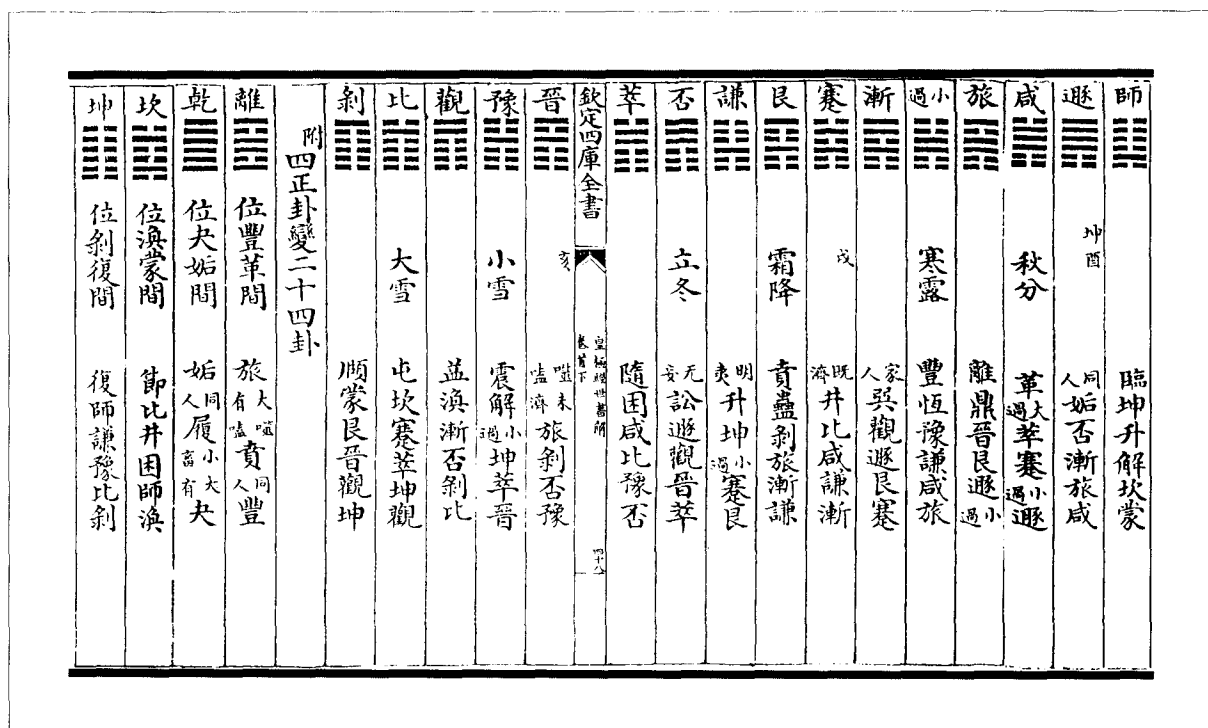 師 臨坤升解坎蒙
遯 坤酉 同人姤否漸旅咸
咸 秋分 革大過萃蹇小過遯
旅 離鼎晉艮遯小過
小過 寒露 豐恆豫謙咸旅
漸 家人巽觀遯艮蹇
蹇 戌 既濟井比咸謙漸
艮 霜降 賁蠱剝旅漸謙
謙 明夷升坤小過蹇艮
否 立冬 无妄訟遯觀晉萃
萃 隨困咸比豫否
欽定四庫全書
皇極經世書解
卷首下
四十八
晉 亥 噬嗑未濟旅剝否豫
豫 小雪 震解小過坤萃晉
觀 益渙漸否剝比
比 大雪 屯坎蹇萃坤觀
剝 頤蒙艮晉觀坤
附四正卦變二十四卦
離 位豐革間 旅大有噬嗑賁同人豐
乾 位夬姤間 姤同人履小畜大有夬
坎 位渙蒙間 節比井困師渙
坤 位剝復間 復師謙豫比剝